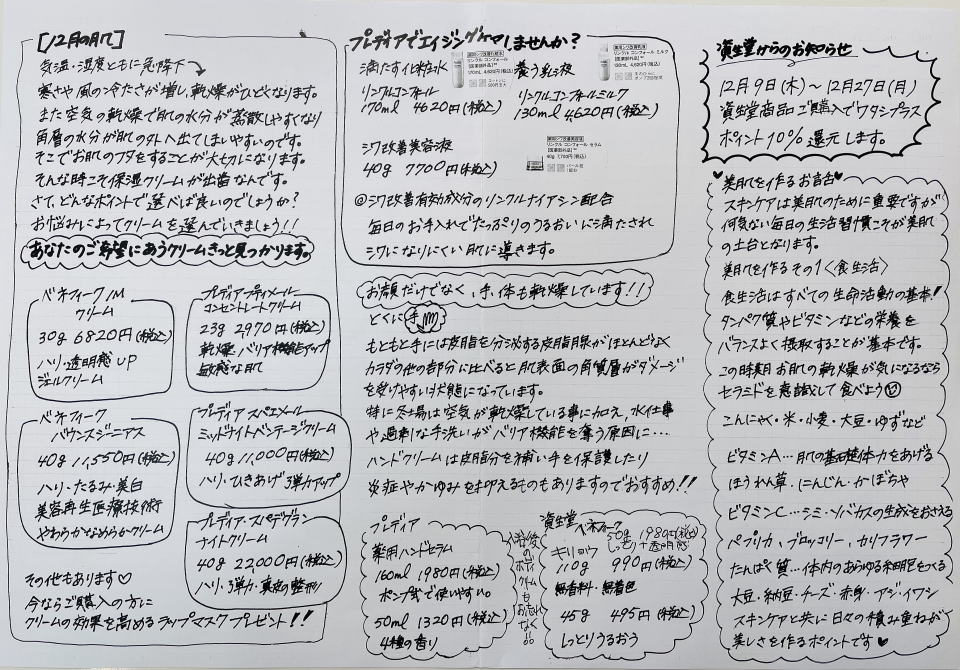 [12月の肌]
気温・湿度ともに急降下
寒さや風の冷たさが増し、乾燥がひどくなります。
また空気の乾燥で肌の水分が蒸散しやすくなり
角層の水分が肌の外へ出てしまいやすいのです。
そこでお肌のフタをすることが大切になります。
そんな時こそ保湿クリームが出番なんです。
さて、どんなポイントで選べば良いのでしょうか?
お悩みによってクリームを選んでいきましょう!!
あなたのご希望にあうクリームきっと見つかります。
ベネフィーク/M
クリーム
30g 6820円(税込)
ハリ・透明感UP
ジェルクリーム
プレディアプティメール
コンセントレートクリーム
23g 2,970円(税込)
乾燥、バリア機能アップ
敏感な肌
ベネフィーク
バウンスジーニアス
40g 11,550円(税込)
ハリ・たるみ・美白
美容再生医療技術
やわらかなめらかクリーム
プレディア スペエメール
ミッドナイトベンテージクリーム
40g 11,000円(税込)
ハリ・ひきあげ 3弾力アップ
プレディア・スパデグラン
ナイトクリーム
40g 22,000円(税込)
ハリ・3弾力・真皮の整形
その他もあります♡
今ならご購入の方に
クリームの効果を高めるラップマスクプレゼント!!
プレディアでエイジングケアしませんか?
満たす化粧水
リンクルコンフォール
170ml 4620円(税込)
薬用シワ改善化粧水
リンクル コンフォール
[医薬部外品]
170mL 4,620円(税込)
養う乳液
リンクルコンフォールミルク
130ml 4620円(税込)
薬用シワ改善乳液
リンクル コンフォール ミルク
[医薬部外品]
130mL 4,620円(税込)
シワ改善美容液
40g 7700円(税込)
薬用シワ改善美容液
リンクル コンフォール セラム
[医薬部外品]
40g 7,700円(税込)
@シワ改善有効成分のリンクルナイアシン配合
毎日のお手入れでたっぷりのうるおいに満たされ
シワになりにくい肌に導きます。
お顔だけでなく、手、体も乾燥しています!!
とくに手
もともと手には皮脂を分泌する皮脂腺がほとんどなく
カラダの他の部分に比べると肌表面の角質層がダメージ
を受けやすい状態になっています。
特に冬場は空気が乾燥している事に加え、水仕事
や過剰な手洗いがバリア機能を奪う原因に…
ハンドクリームは皮脂分を補い手を保護したり
炎症やかゆみを抑えるものもありますのでおすすめ!!
プレディア
薬用ハンドセラム
160ml 1980円(税込)
ポンプ式で使いやすい。
50ml 1320円(税込)
4種の香り
資生堂
ベネフィーク
50g 1980円(税込)
しっとり+透明感
キリョウ
110g 990円(税込)
無香料・無着色
45g 495円(税込)
しっとりうるおう
資生堂からのお知らせ
12月9日(木)〜12月27日(月)
資生堂商品ご購入でワタシプラス
ポイント10%還元します。
美肌を作るお言舌
スキンケアは美肌のために重要ですが
何気ない毎日の生活習慣こそが美肌
の土台となります。
美肌を作るその1〈食生活〉
食生活はすべての生命活動の基本!
タンパク質やビタミンなどの栄養を
バランスよく摂取することが基本です。
この時期お肌の乾燥が気になるなら
セラミドを意識して食べよう
こんにゃく・米・小麦・大豆・ゆずなど
ビタミンA…肌の基礎体力をあげる
ほうれん草、にんじん・かぼちゃ
ビタミンC…シミ・ソバカスの生成をおさえる
パプリカ、ブロッコリー、カリフラワー
たんぱく質…体内のあらゆる細胞をつくる
大豆・納豆・チーズ・赤身・アジ・イワシ
スキンケアと共に日々の積み重ねが
美しさを作るポイントです♥